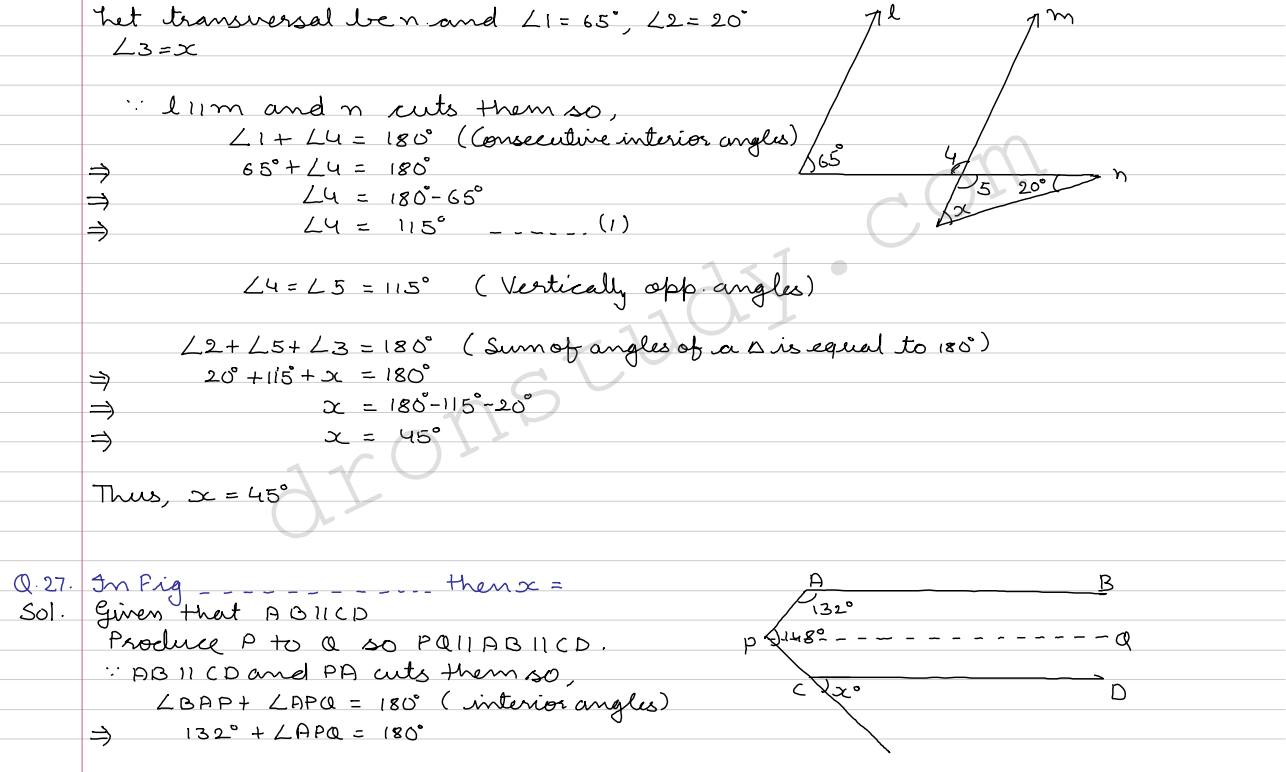 Let transversal be n and ∠1 = 65°, ∠2 = 20°
∠3 = x
∵ l ॥ m and n cuts them so,
∠1 + ∠4 = 180° (Consecutive interior angles)
⇒ 65° + ∠4 = 180°
⇒ ∠4 = 180° - 65°
⇒ ∠4 = 115° ------ (1)
∠4 = ∠5 = 115° (Vertically opp. angles)
∠2 + ∠5 + ∠3 = 180° (Sum of angles of a Δ is equal to 180°)
⇒ 20° + 115° + x = 180°
⇒ x = 180° - 115° - 20°
⇒ x = 45°
Thus, x = 45°
l
m
65°
4
5
20°
n
x
dronstudy.com
Q.27. In Fig ------------ then x =
Sol. Given that AB॥CD
Produce P to Q so PQ॥AB॥CD.
∵ AB॥CD and PA cuts them so,
∠BAP + ∠APQ = 180° (interior angles)
⇒ 132° + ∠APQ = 180°
A
B
132°
P
148°
Q
C
x°
D